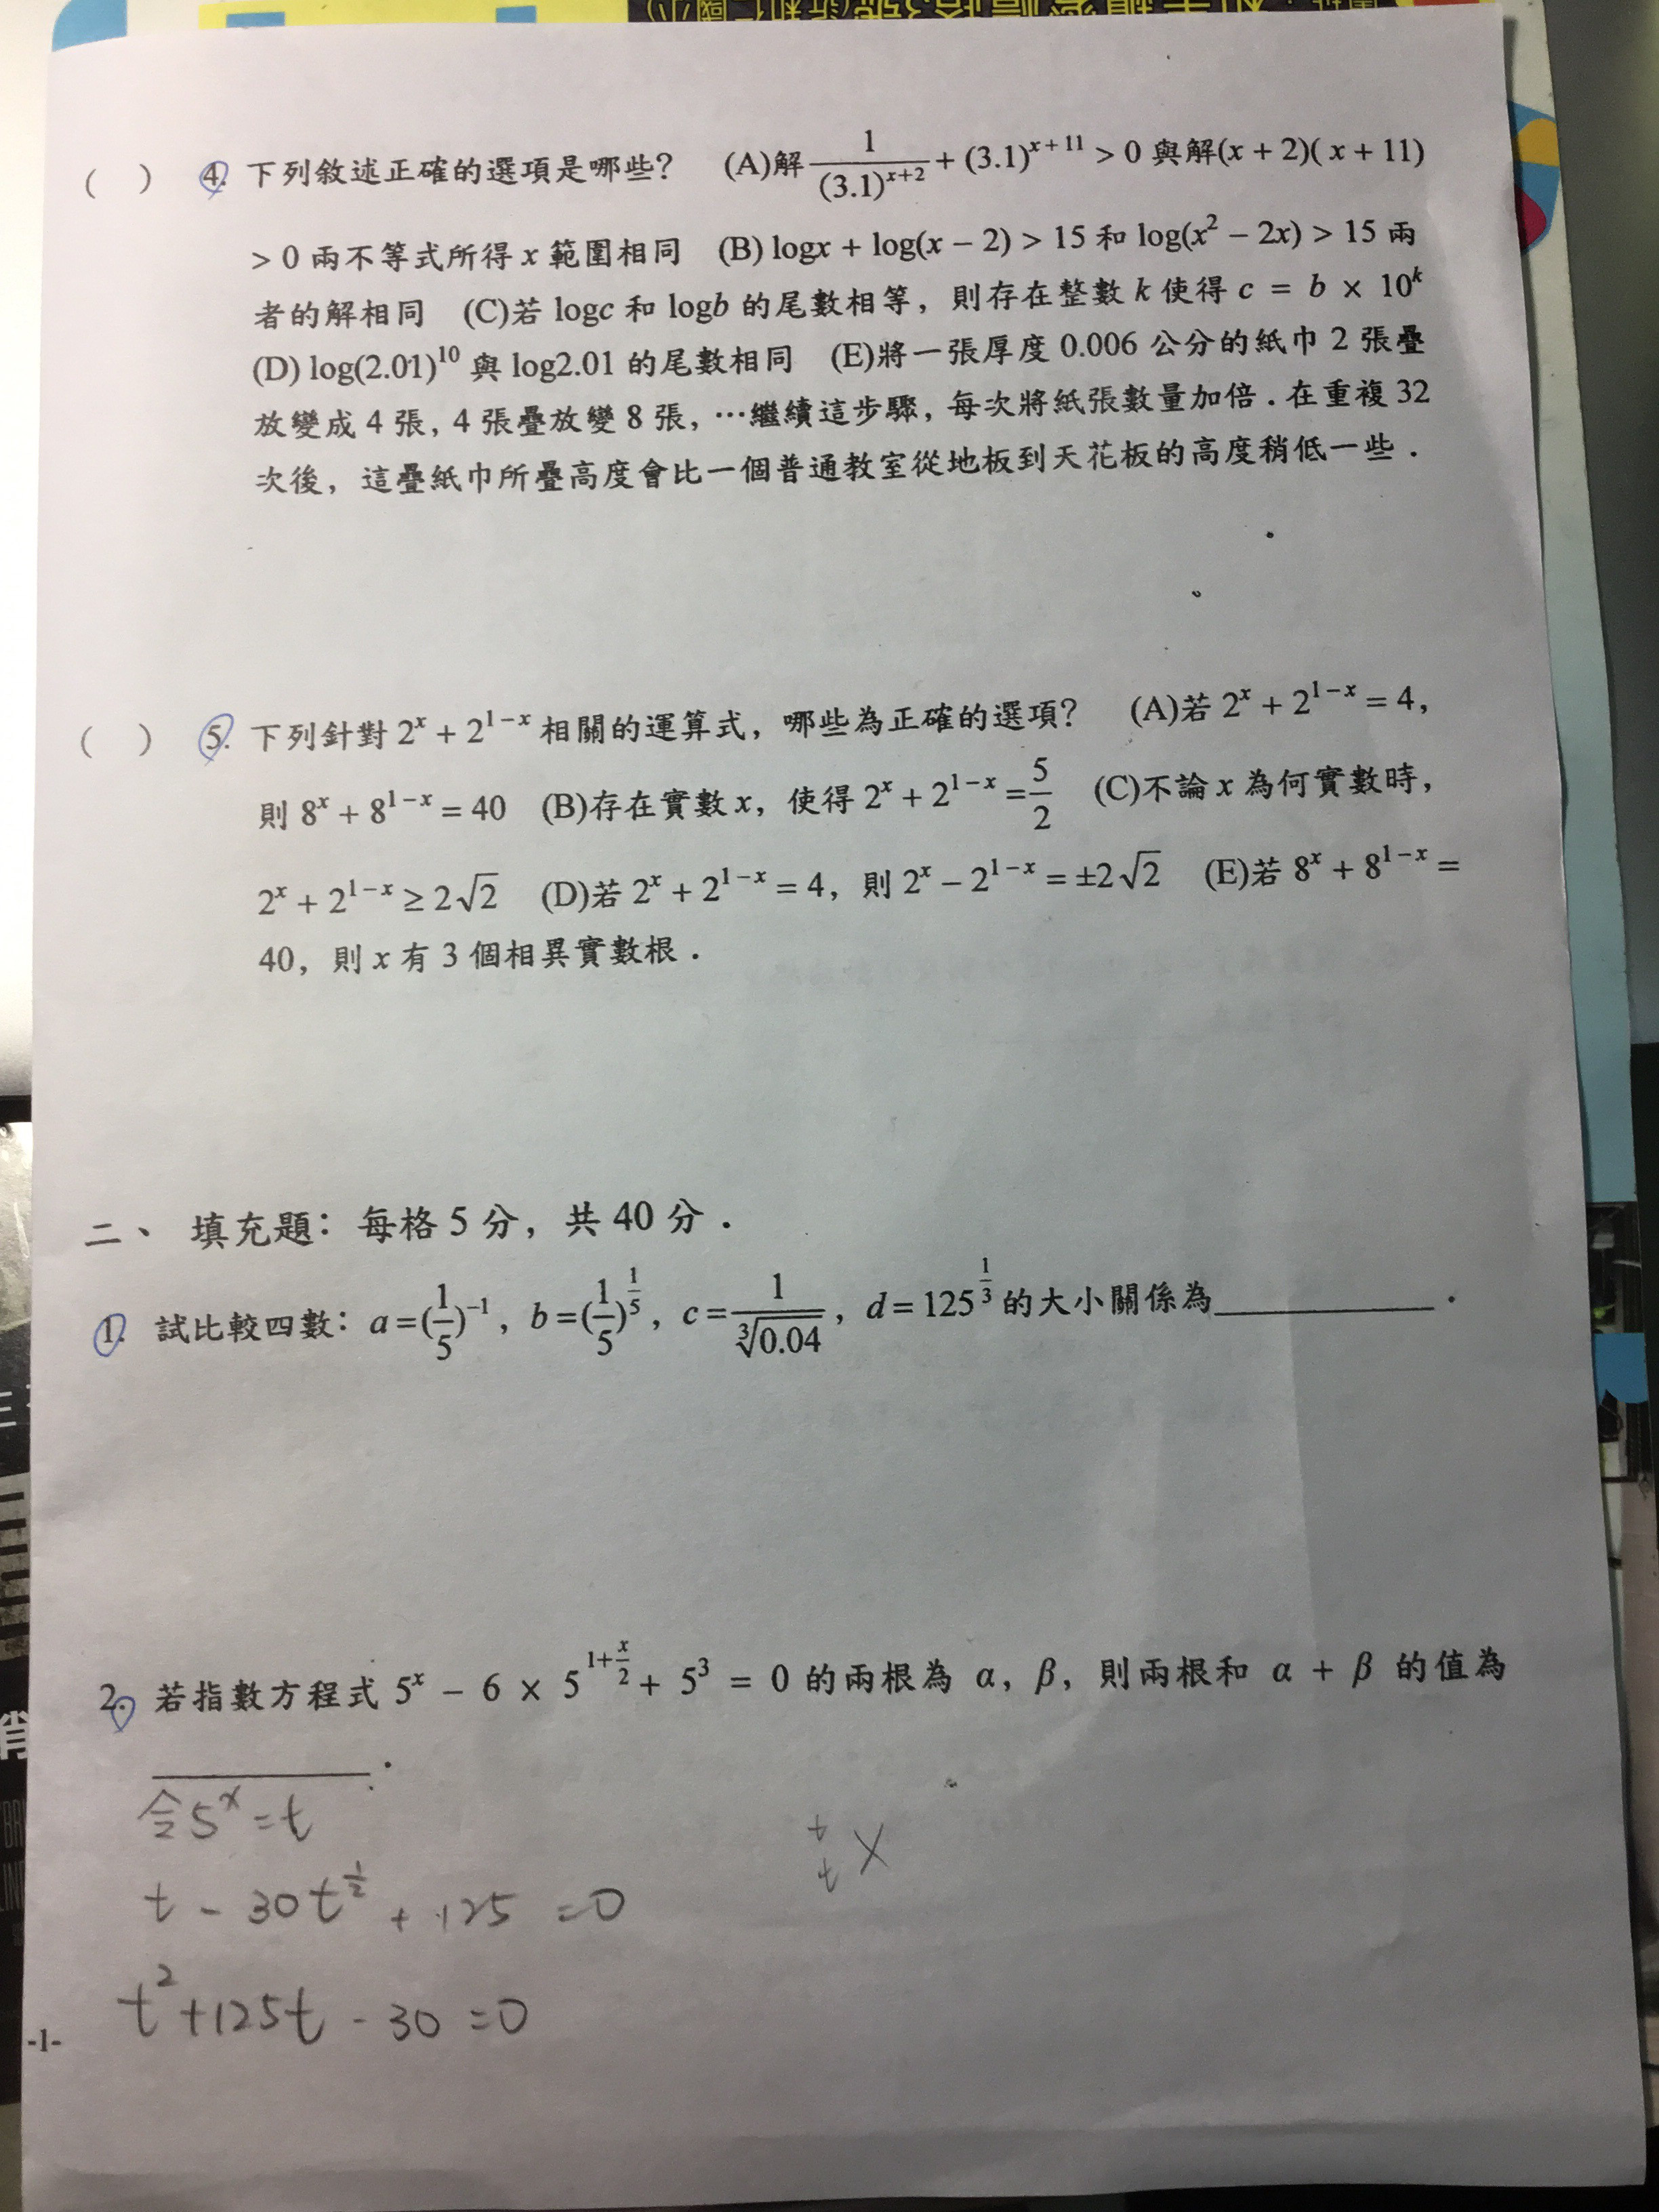 ( ) 4. 下列敘述正確的選項是哪些？ (A)解 1/(3.1)^{x+2} + (3.1)^{x+11} > 0 與解(x + 2)( x + 11)
> 0 兩不等式所得 x 範圍相同 (B) logx + log(x − 2) > 15 和 log(x² − 2x) > 15 兩
者的解相同 (C)若 logc 和 logb 的尾數相等，則存在整數 k 使得 c = b × 10^k
(D) log(2.01)^{10} 與 log2.01 的尾數相同 (E)將一張厚度 0.006 公分的紙巾 2 張疊
放變成 4 張，4 張疊放變 8 張，…繼續這步驟，每次將紙張數量加倍．在重複 32
次後，這疊紙巾所疊高度會比一個普通教室從地板到天花板的高度稍低一些．
( ) 5. 下列針對 2^x + 2^{1−x} 相關的運算式，哪些為正確的選項？ (A)若 2^x + 2^{1−x} = 4，
則 8^x + 8^{1−x} = 40 (B)存在實數 x，使得 2^x + 2^{1−x} = 5/2 (C)不論 x 為何實數時，
2^x + 2^{1−x} ≥ 2√2 (D)若 2^x + 2^{1−x} = 4，則 2^x − 2^{1−x} = ±2√2 (E)若 8^x + 8^{1−x} =
40，則 x 有 3 個相異實數根．
二、 填充題：每格 5 分，共 40 分．
1. 試比較四數：a = (1/5)^{−1}，b = (1/5)^{1/5}，c = 1/∛0.04，d = 125^{1/3} 的大小關係為__________．
2. 若指數方程式 5^x − 6 × 5^{1+x/2} + 5³ = 0 的兩根為 α，β，則兩根和 α + β 的值為
__________．
令5^x = t
t - 30t^{1/2} + 125 = 0
t
t
t² + 125t - 30 = 0
-1-